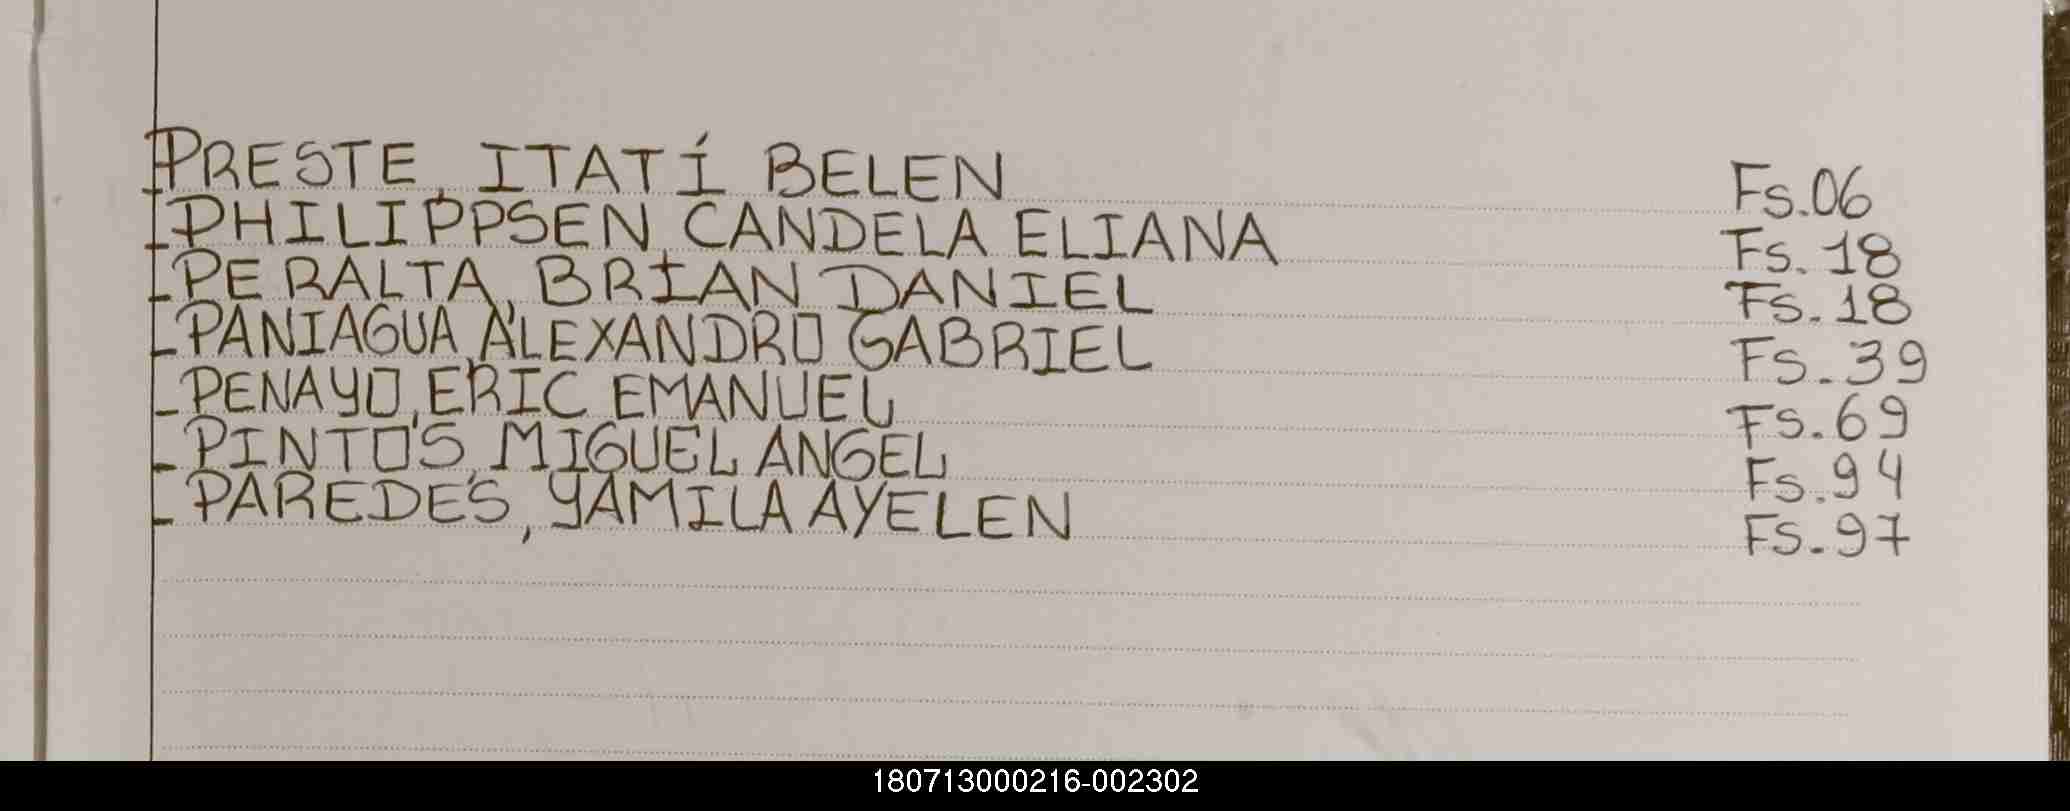 - PRESTE, ITATÍ BELEN Fs. 06
- PHILIPPSEN, CANDELA ELIANA Fs. 18
- PERALTA, BRIAN DANIEL Fs. 18
- PANIAGUA, ALEXANDRO GABRIEL Fs. 39
- PENAYO, ERIC EMANUEL Fs. 69
- PINTOS, MIGUEL ANGEL Fs. 94
- PAREDES, YAMILA AYELEN Fs. 97
180713000216-002302